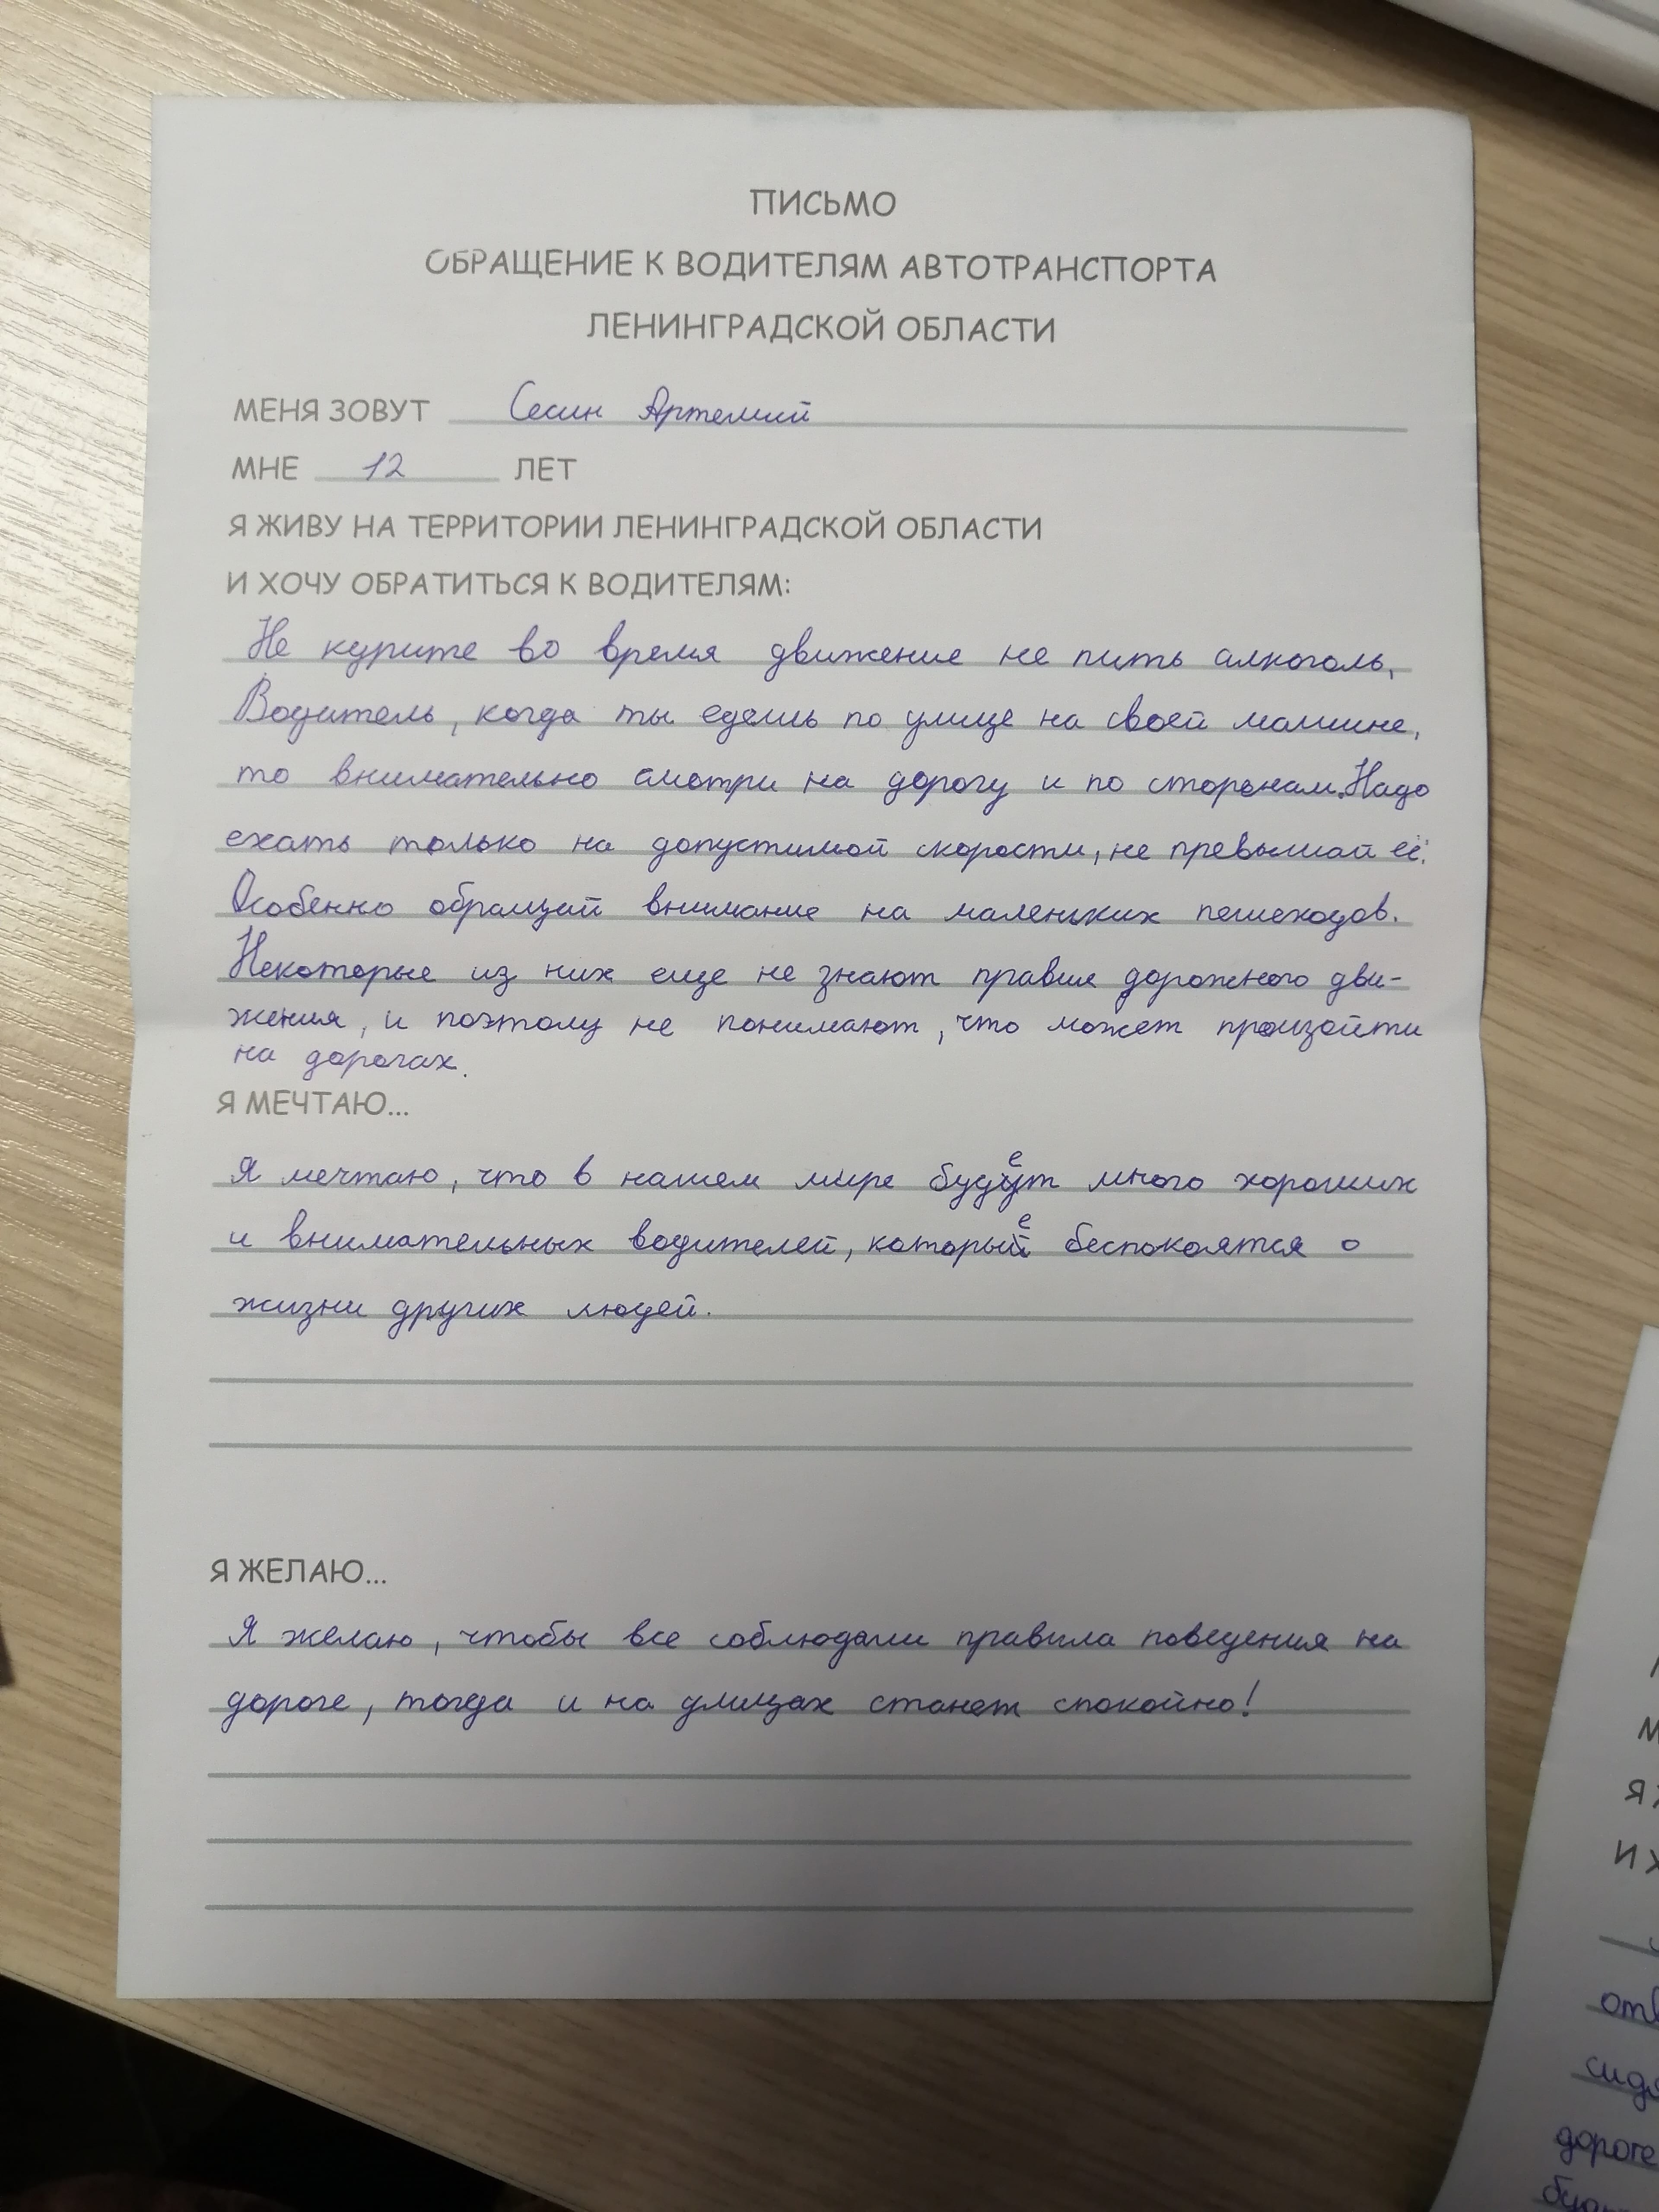 ПИСЬМО
ОБРАЩЕНИЕ К ВОДИТЕЛЯМ АВТОТРАНСПОРТА
ЛЕНИНГРАДСКОЙ ОБЛАСТИ
МЕНЯ ЗОВУТ Сесин Артемий
МНЕ 12 ЛЕТ
Я ЖИВУ НА ТЕРРИТОРИИ ЛЕНИНГРАДСКОЙ ОБЛАСТИ
И ХОЧУ ОБРАТИТЬСЯ К ВОДИТЕЛЯМ:
Не курите во время движение не пить алкоголь,
Водитель, когда ты едешь по улице на своей машине,
то внимательно смотри на дорогу и по сторонам. Надо
ехать только на допустимой скорости, не превышай её.
Особенно обращай внимание на маленьких пешеходов.
Некоторые из них еще не знают правил дорожного дви-
жения, и поэтому не понимают, что может произойти
на дорогах.
Я МЕЧТАЮ...
Я мечтаю, что в нашем мире будет много хороших
и внимательных водителей, которые беспокоятся о
жизни других людей.
Я ЖЕЛАЮ...
Я желаю, чтобы все соблюдали правила поведения на
дороге, тогда и на улицах станет спокойно!
Я
И
дороге